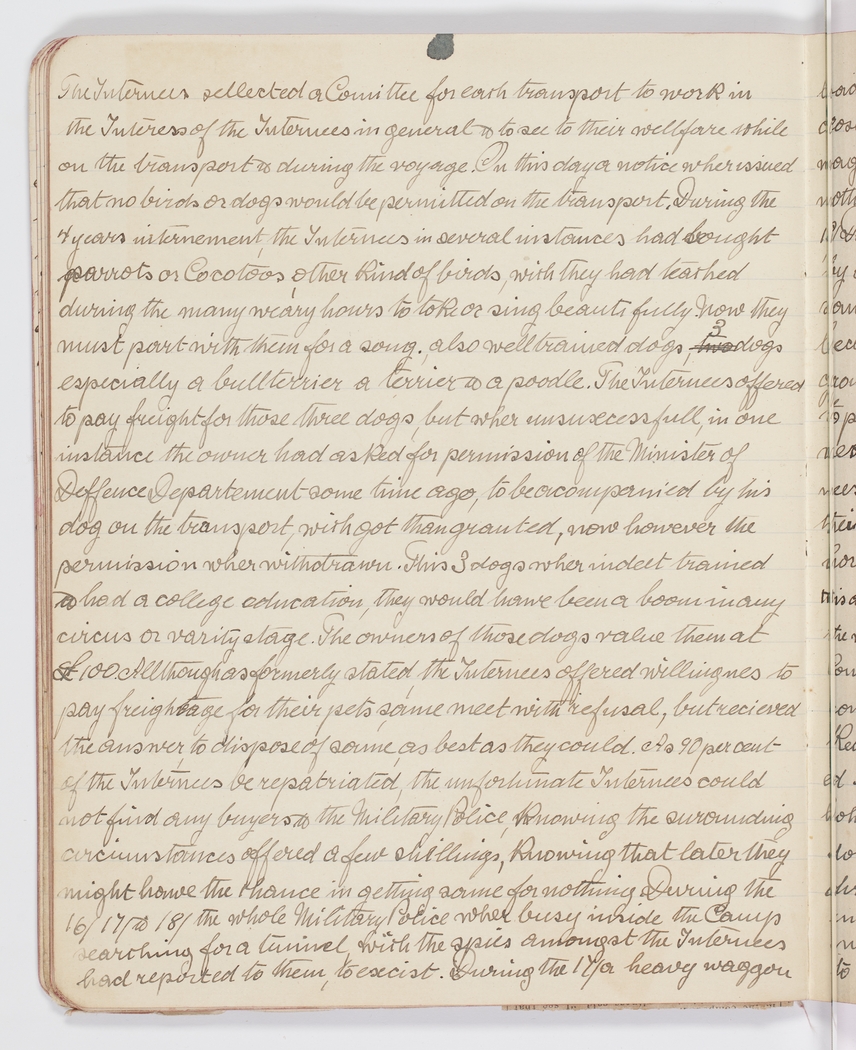 The Internees sellected a Comittee for each transport to work in
the Interess of the Internees in general & to see to their wellfare while
on the transport & during the voyage. On this day a notice wher issued
that no birds or dogs would be permitted on the transport. During the
4 years internement, the Internees in several instances had bought
parrots or Cocotoos, other kind of birds, wich they had teached
during the many weary hours to toke or sing beautifully. Now they
must part with them for a song. also welltrained dogs, two 3 dogs
especially a bullterrier a terrier & a poodle. The Internees offered
to pay freight for those three dogs, but wher unsusecessfull, in one
instance the owner had asked for permission of the Minister of
Deffence Departement some time ago, to be acompanied by his
dog on the transport, wich got than granted, now however the
permission wher withdrawn. This 3 dogs wher indeet trained
& had a college education, they would hawe been a boom in any
circus or varity stage. The owners of those dogs value them at
£100. Allthough as formerly stated, the Internees offered willingnes to
pay freightage for their pets, same meet with refusal, but recieved
the answer, to dispose of same, as best as they could. As 90 per cent
of the Internees be repatriated, the unfortunate Internees could
not find any buyers & the Military Police, Knowing the surounding
circiumstances offered a few shillings, Knowing that later they
might hawe the chance in getting same for nothing. During the
16/ 17/ & 18/ the whole Military Police wher busy inside the Camp
searching for a tunnel, wich the spies amongst the Internees
had reported to them, to excist. During the 17/ a heavy waggon